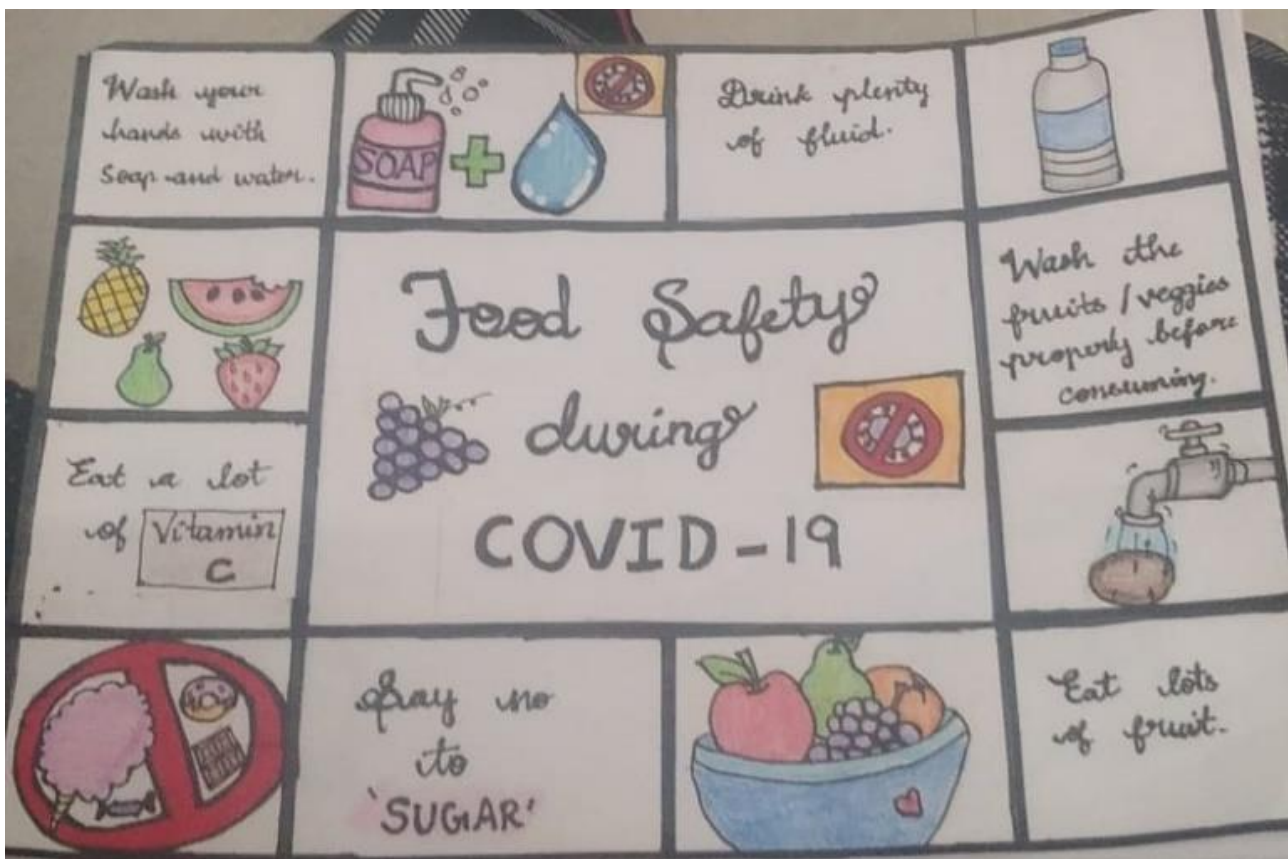 Wash your
hands with
Soap and water.
SOAP
Drink plenty
of fluid.
Food Safety
during
COVID-19
Wash the
fruits/veggies
properly before
consuming.
Eat a lot
of Vitamin
C
Say no
to
'SUGAR'
Eat lots
of fruit.